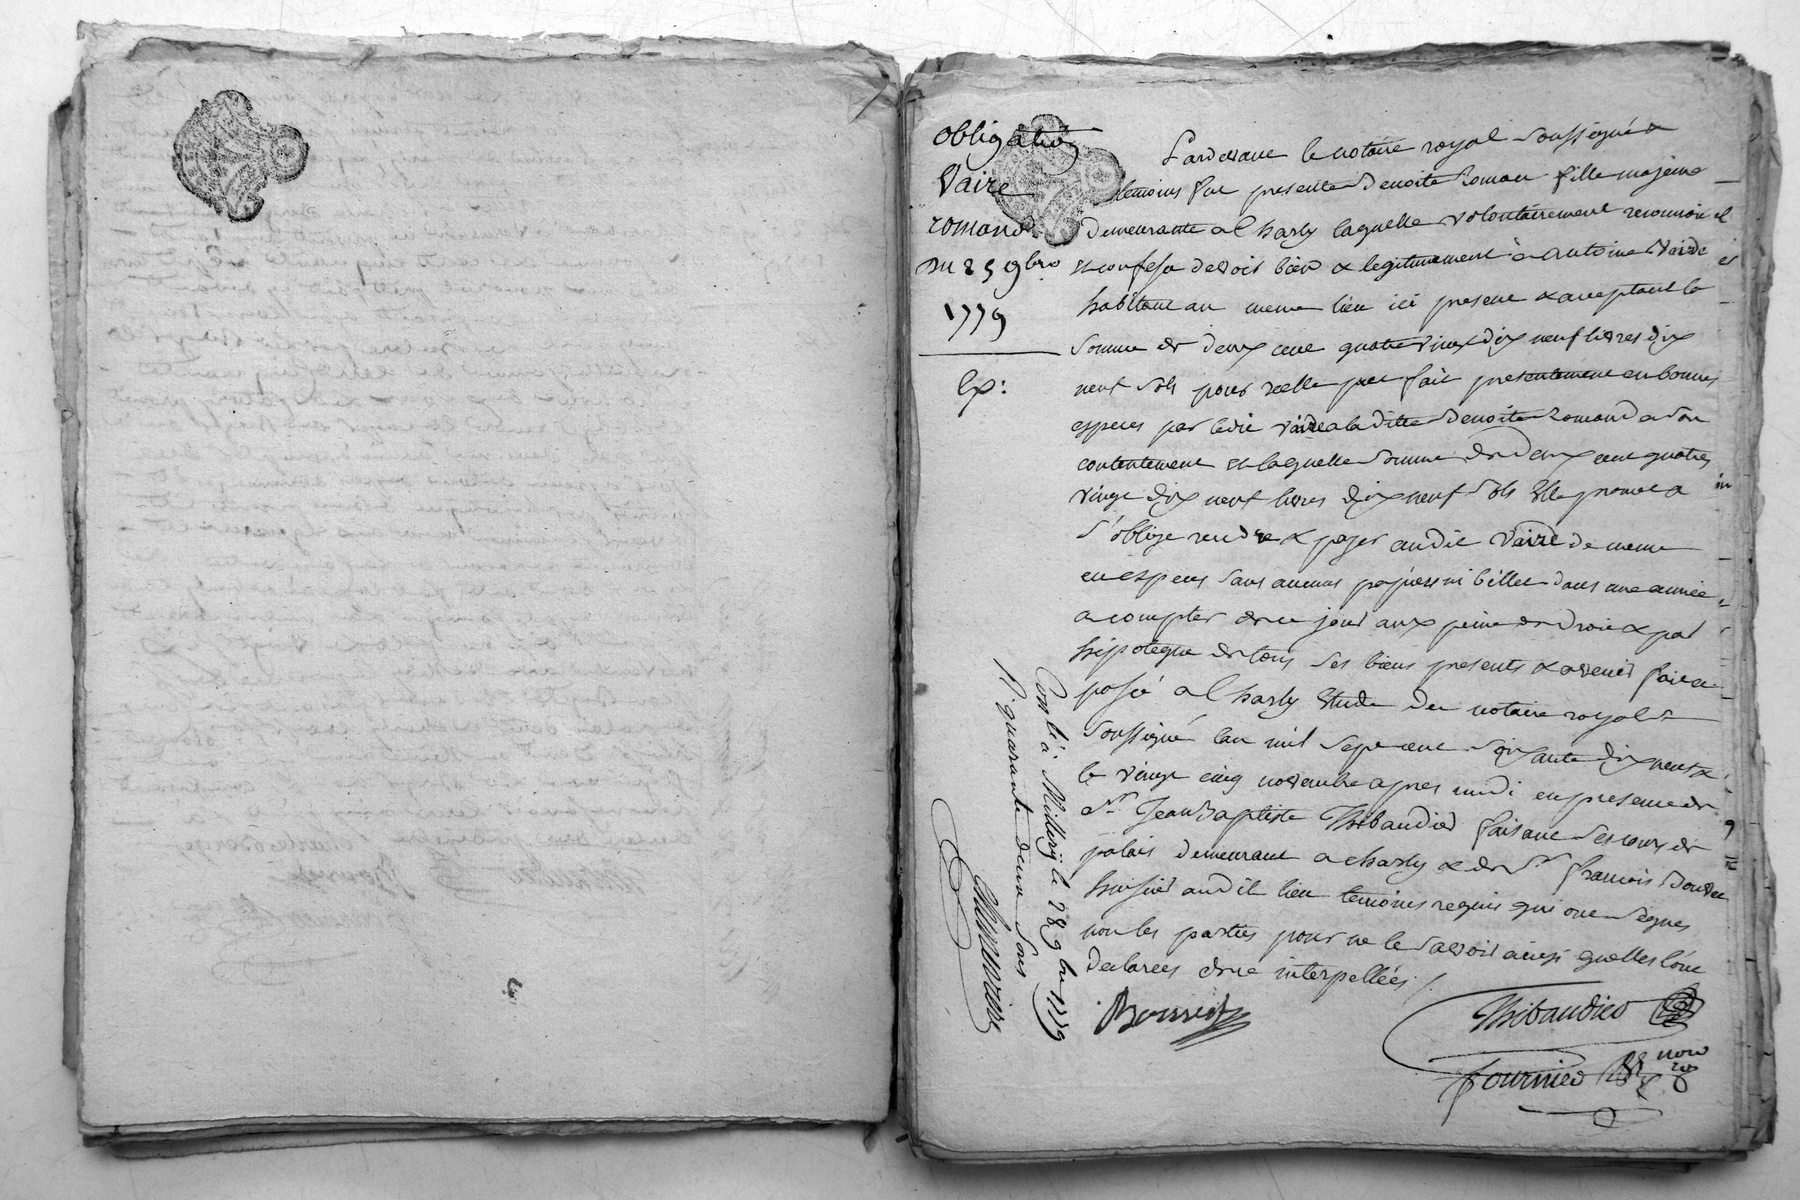 obligation
Vaire
romand
Du 25 9bre
1779
Ex:
Pardevant le notaire royal soussigné &
temoins fut presente Benoite Romand fille majeure
demeurante a Charly laquelle volontairement reconnoit
et confesse devoir bien & legitimement à antoine Vaire
habitant au meme lieu ici present & acceptant la
somme de deux cent quatre vingt dix neuf livres dix
neuf sols pour reelle pret fait presentement en bonnes
especes par ledit Vaire a la ditte Benoite Romand a son
contentement et laquelle somme de deux cent quatre
vingt dix neuf livres dix neuf sols Elle promet &
s'oblige rendre & payer audit Vaire de meme
en especes sans aucuns papiers ni billet dans une année
a compter de ce jour aux peine de droit & par
hipoteque de tous ses biens presents & avenir fait &
passé a Charly Etude du notaire royal
soussigné l'an mil sept cent soixante dix neuf &
le vingt cinq novembre apres midi en presence de
Sr Jean Baptiste Thibaudier faisant ses cours de
palais demeurant a charly & de Sr francois
huissier audit lieu temoins requis qui ont signes
non les parties pour ne le savoir ainsi quelles l'ont
declarées de ce interpellées ./.
Thibaudier
fournier
Conlé à Millery le 28 9bre 1779
R quarante deux sols